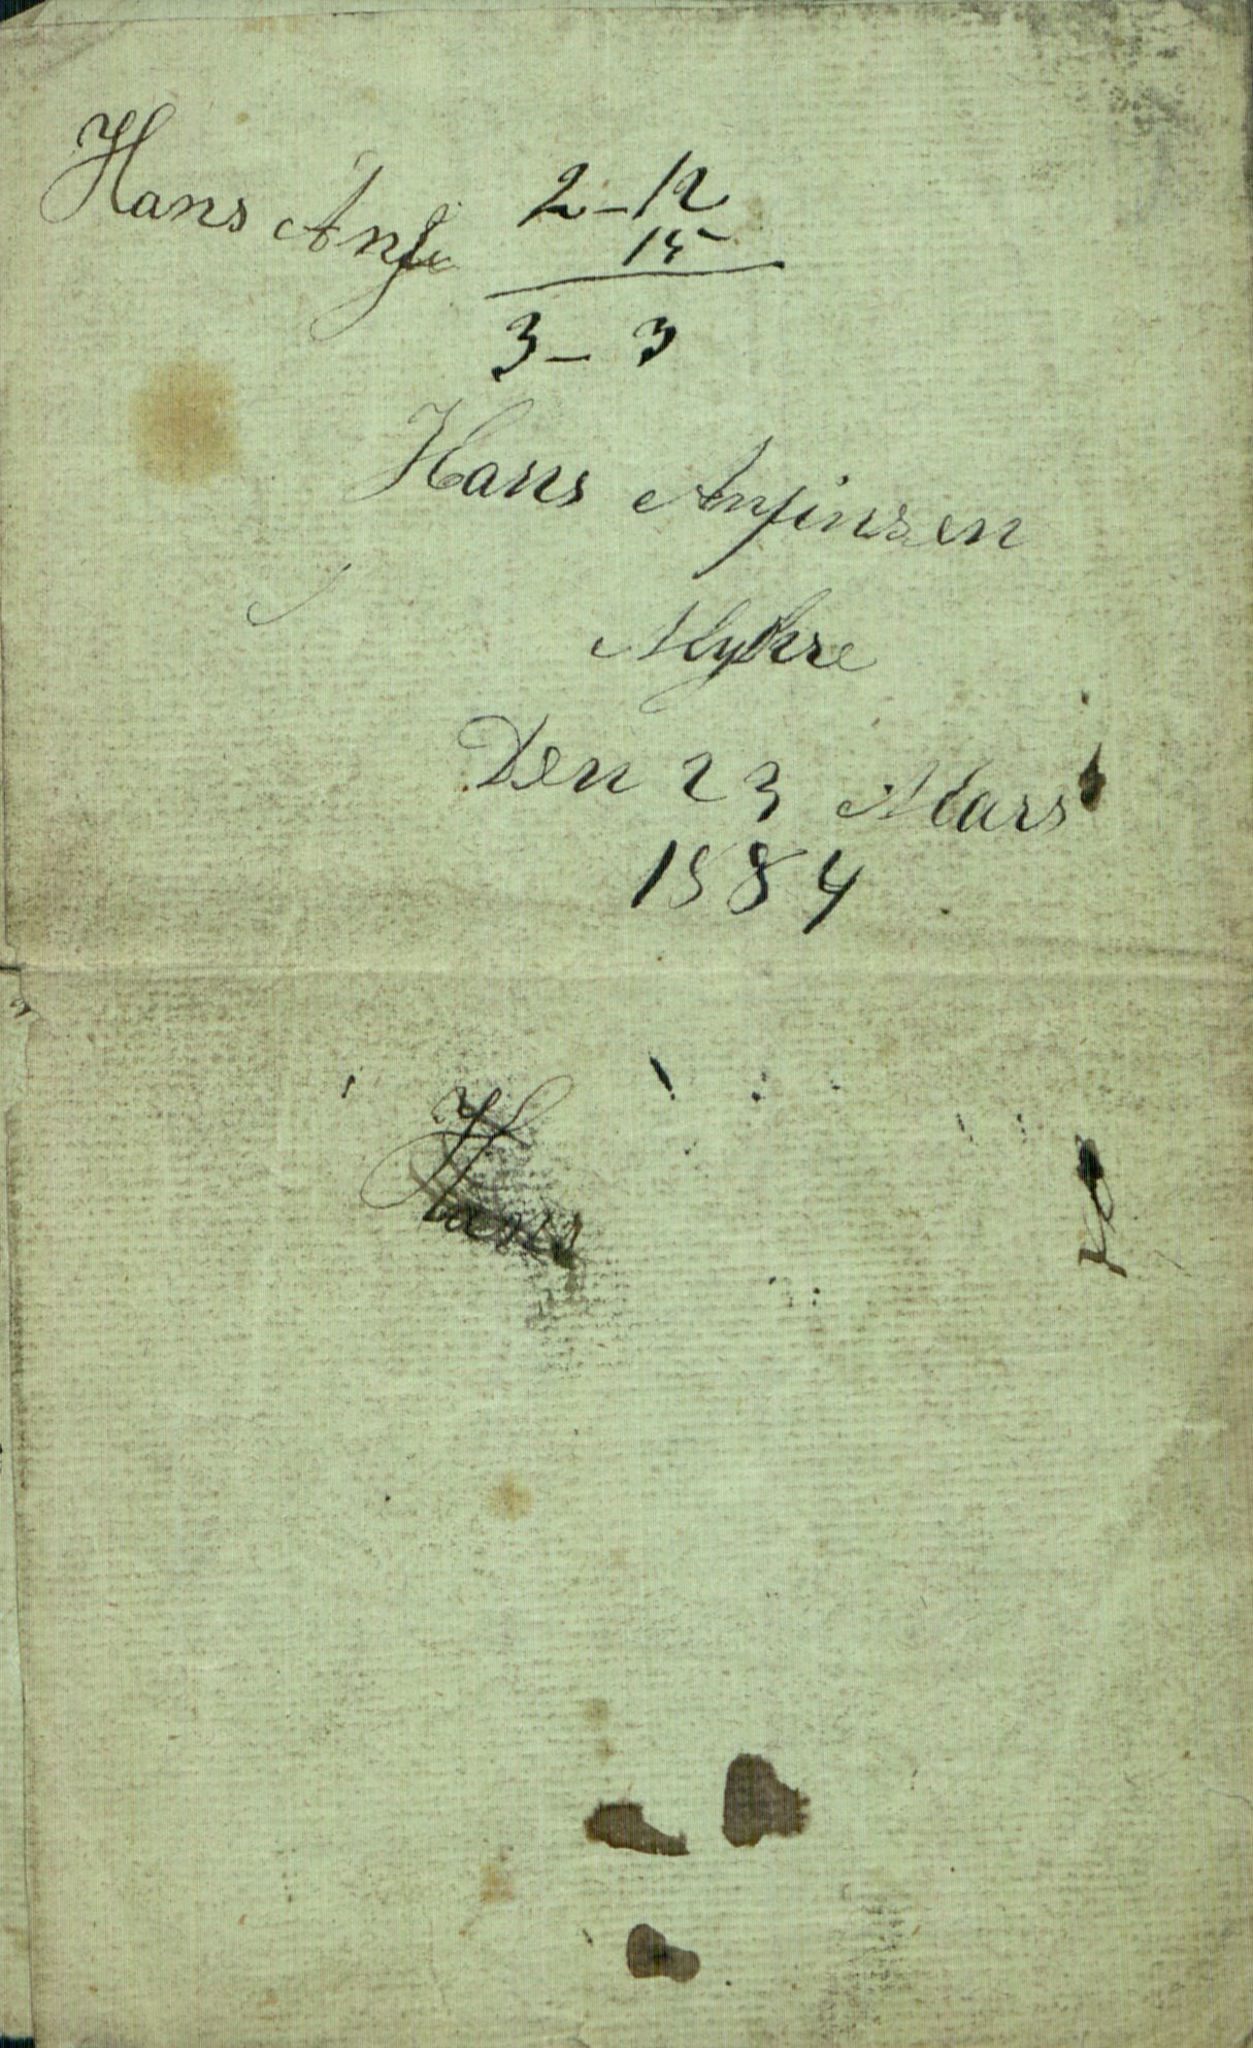 Hans Anfi
2 - 12
15
3 - 3
Hans Anfinsen
Myhre
Den 23 Mars
1884
Hans